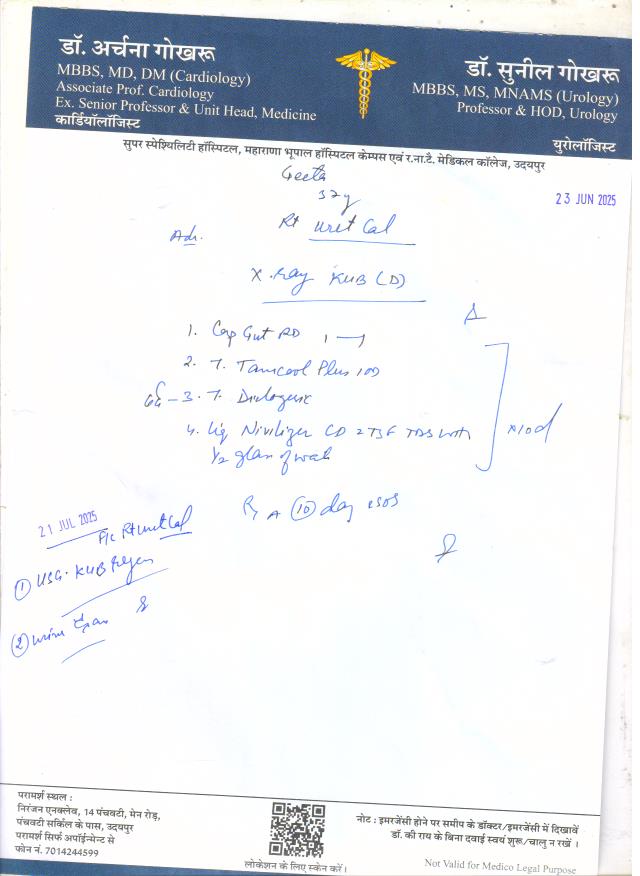 डॉ. अर्चना गोखरू
MBBS, MD, DM (Cardiology)
Associate Prof. Cardiology
Ex. Senior Professor & Unit Head, Medicine
कार्डियॉलॉजिस्ट
डॉ. सुनील गोखरू
MBBS, MS, MNAMS (Urology)
Professor & HOD, Urology
युरोलॉजिस्ट
सुपर स्पेश्यिलिटी हॉस्पिटल, महाराणा भूपाल हॉस्पिटल केम्पस एवं र.ना.टै. मेडिकल कॉलेज, उदयपुर
Geeta
32y
23 JUN 2025
Rt Uret Cal
Adv.
X-Ray KUB (D)
1. Cap Gut RD 1
2. T. Tamcool Plus 10D
3. T.
4. Liq CD 2TSF TDS with
1/2 glass of water
x10d
A (10) day
21 JUL 2025
Rt Uret Cal
(1) USG. KUB Region
(2) Urine
परामर्श स्थल :
निरंजन एनक्लेव, 14 पंचवटी, मेन रोड़,
पंचवटी सर्किल के पास, उदयपुर
परामर्श सिर्फ अपॉईन्मेन्ट से
फोन नं. 7014244599
लोकेशन के लिए स्केन करें।
नोट : इमरजेंसी होने पर समीप के डॉक्टर/इमरजेंसी में दिखावें
डॉ. की राय के बिना दवाई स्वयं शुरू/चालु न रखें ।
Not Valid for Medico Legal Purpose